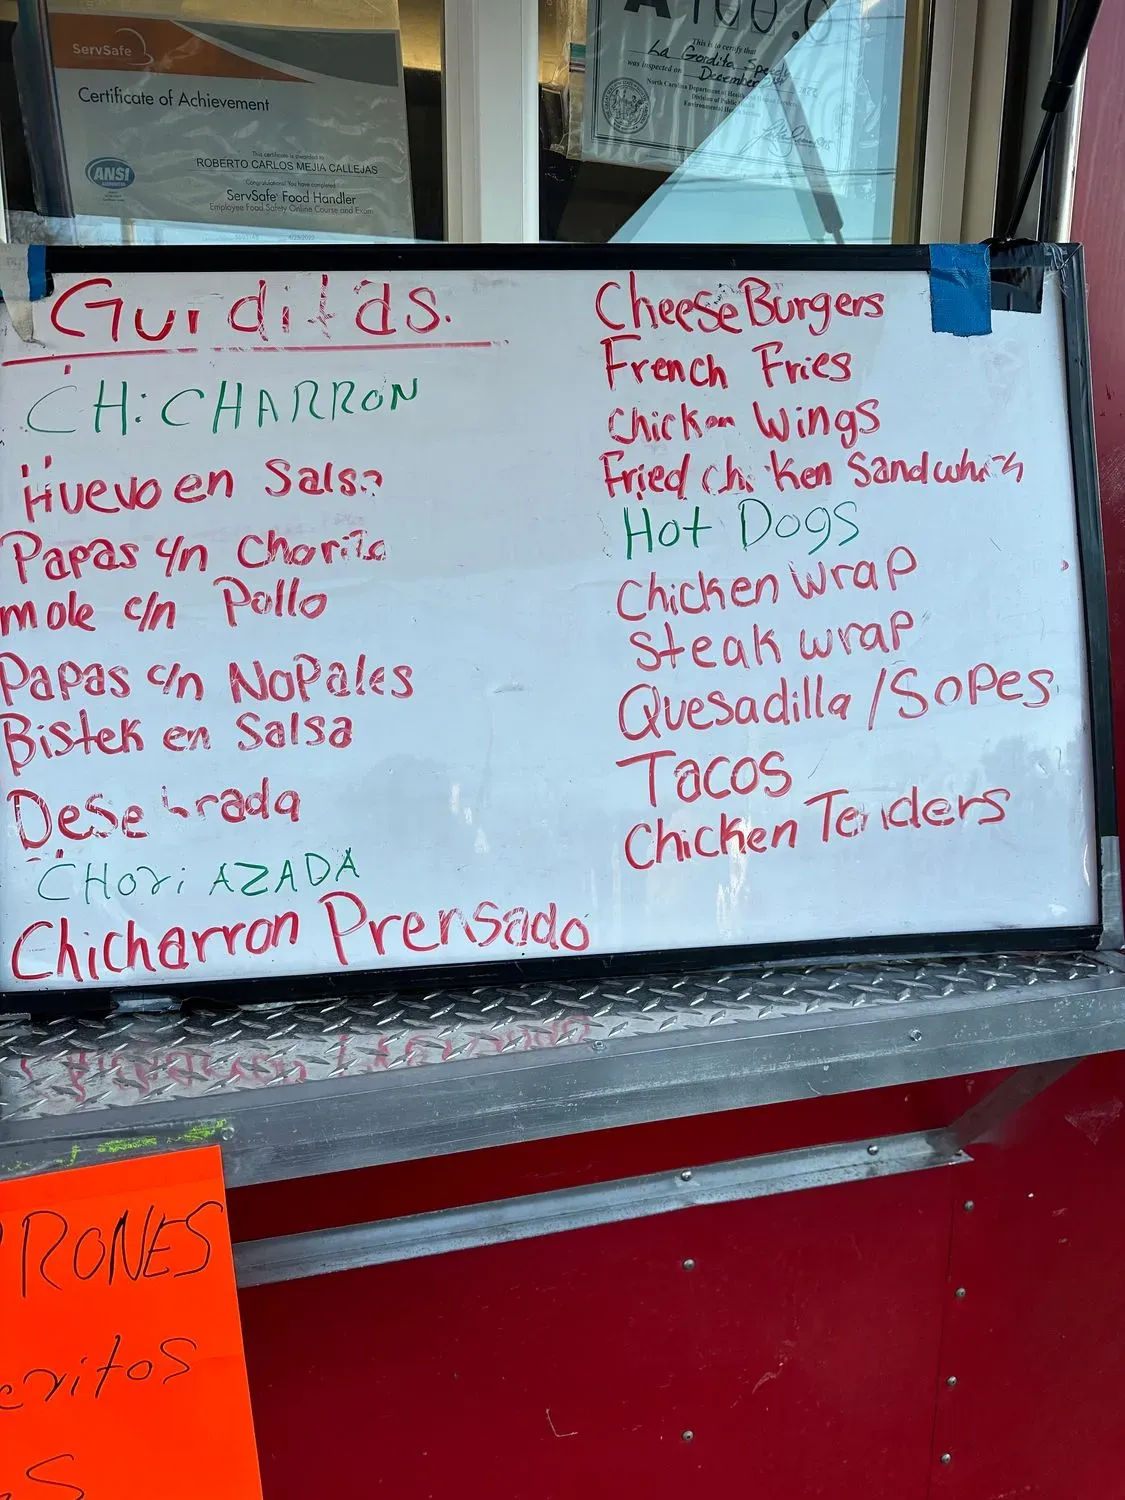 ServSafe
Certificate of Achievement
This certificate is awarded to
ROBERTO CARLOS MEJIA CALLEJAS
Congratulations! You have completed
ServSafe® Food Handler
Employee Food Safety Online Course and Exam
ANSI
A 100.0
This is to certify that
La Gordita
was inspected on December
North Carolina Department of
Division of Public
Environmental
Gurditas.
CHiCHARRON
Huevo en Salsa
Papas c/n Chorizo
mole c/n Pollo
Papas c/n NoPales
Bistek en Salsa
Desebrada
CHori AZADA
Chicharron Prensado
Cheese Burgers
French Fries
Chicken Wings
Fried chicken Sandwhich
Hot Dogs
Chicken Wrap
Steak wrap
Quesadilla / Sopes
Tacos
Chicken Tenders
RONES
eritos
S